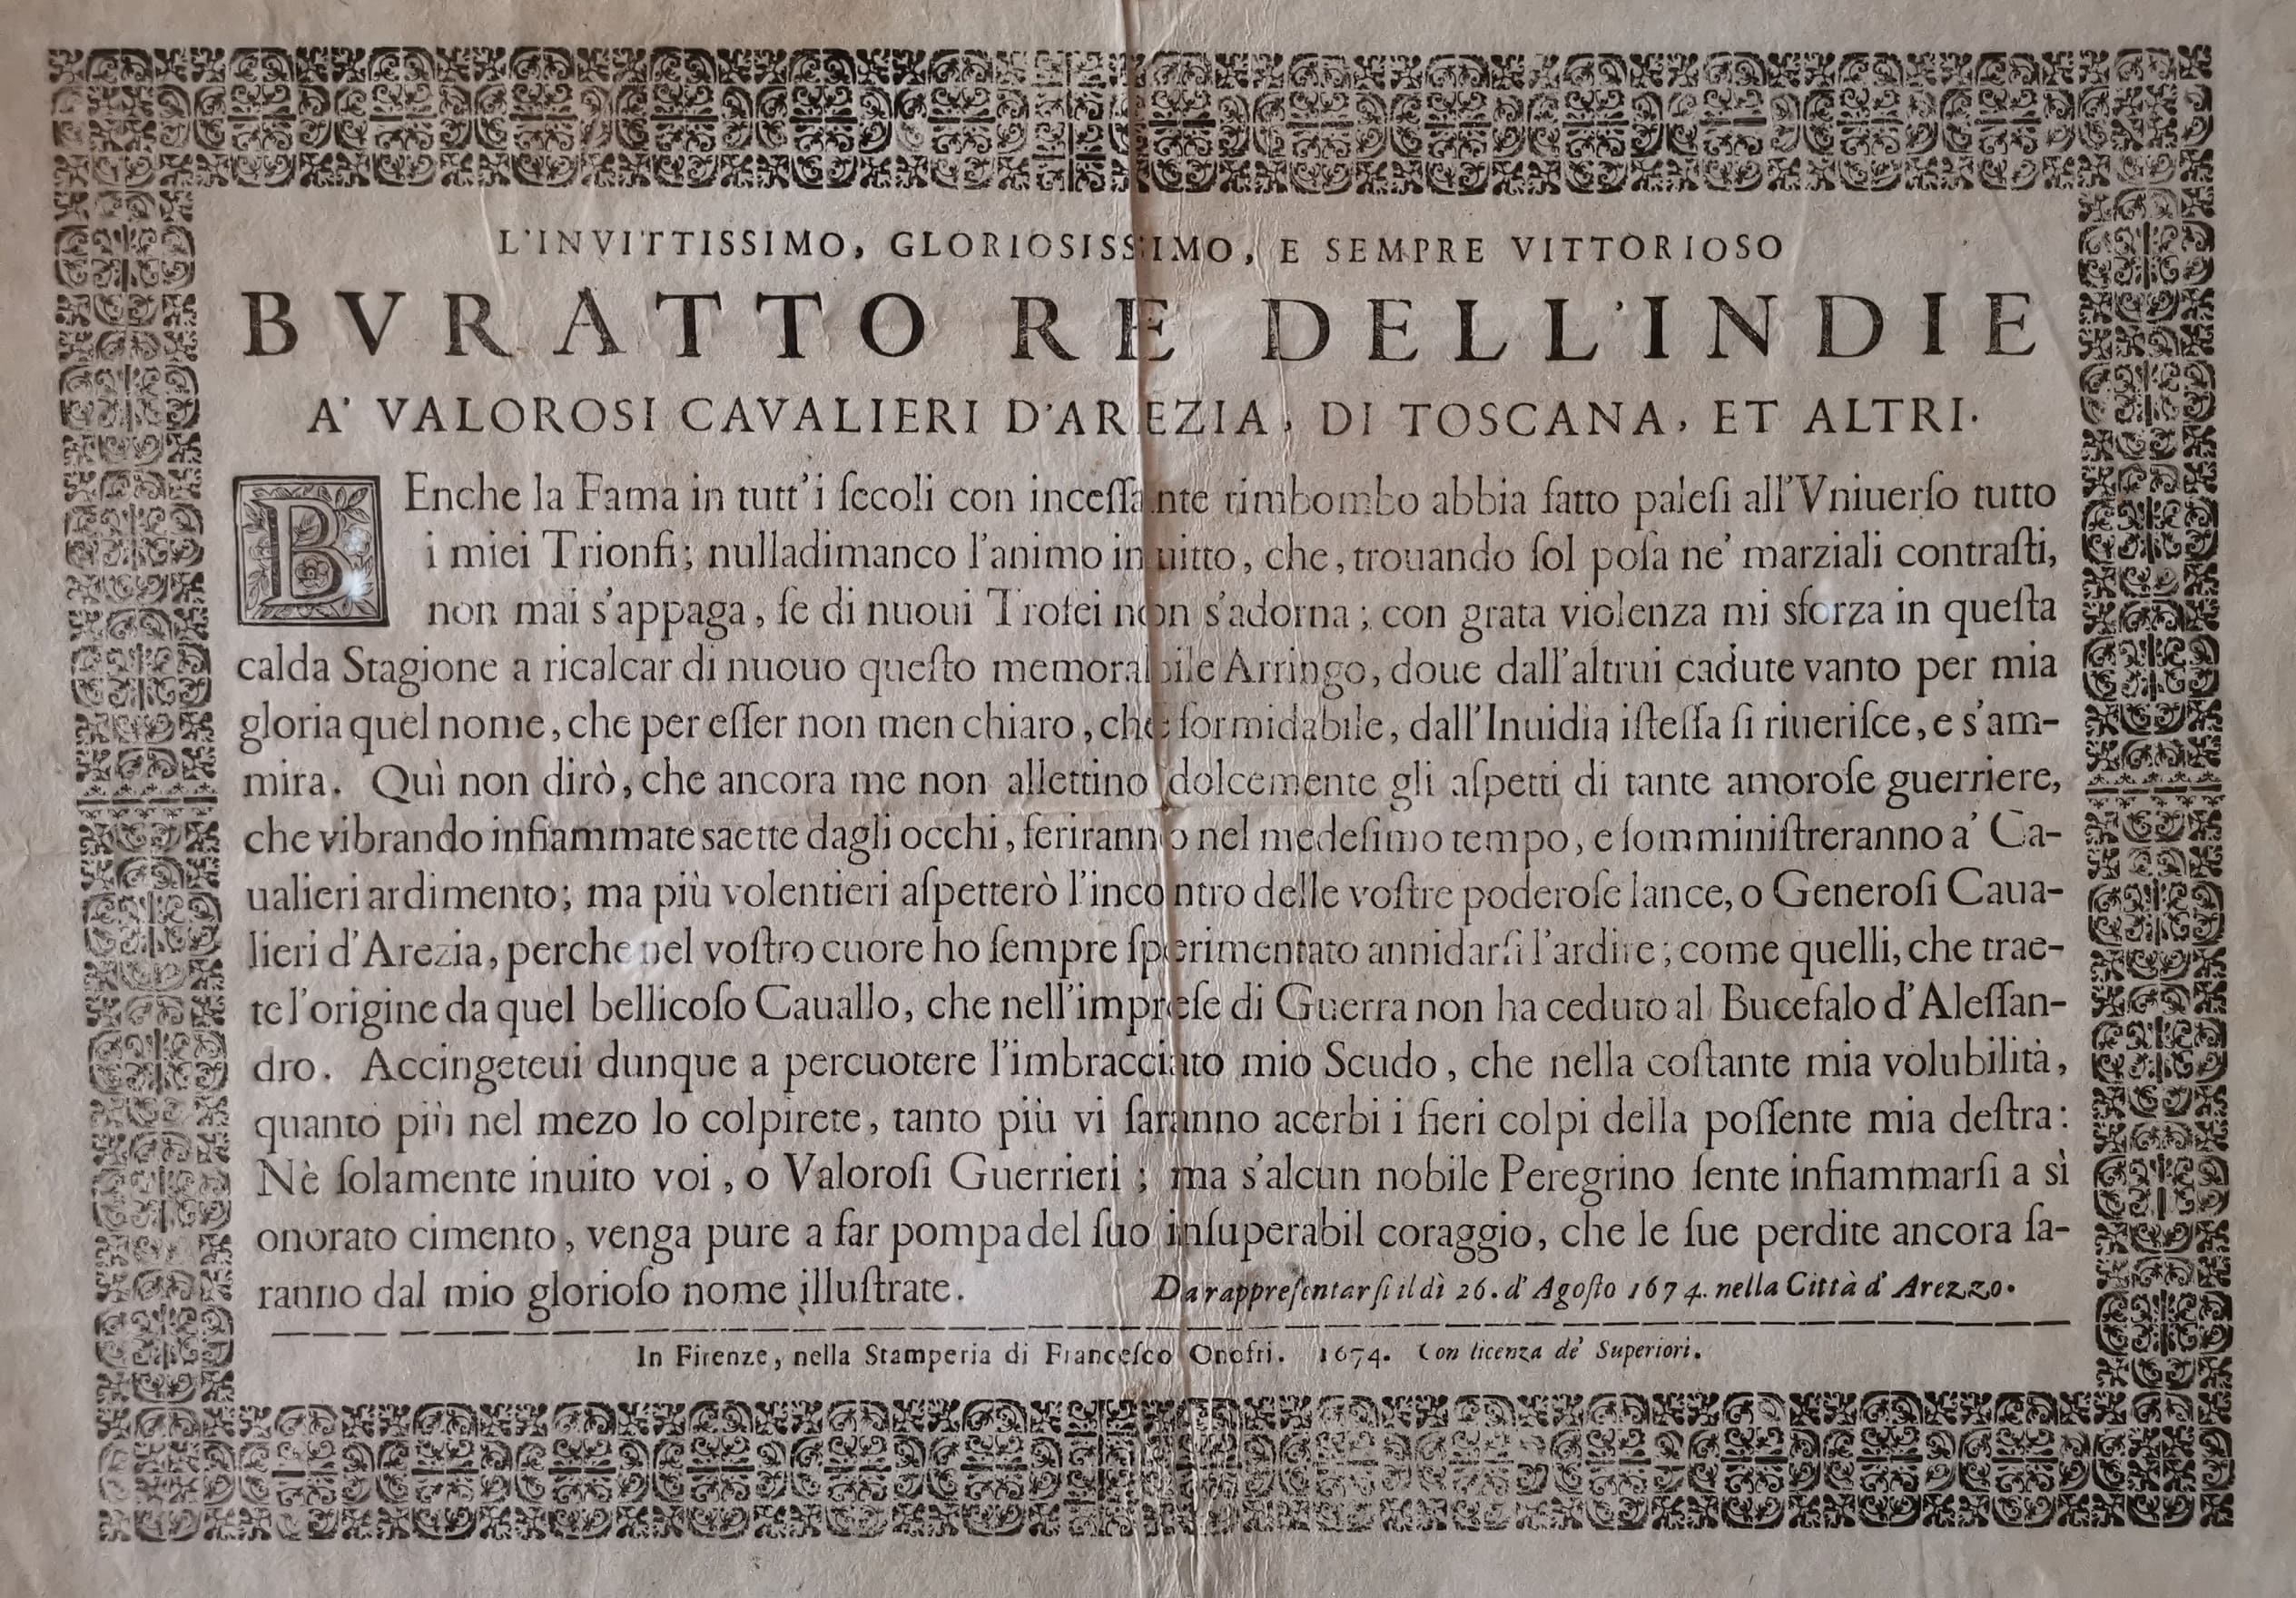 L'INVITTISSIMO, GLORIOSISSIMO, E SEMPRE VITTORIOSO
BVRATTO RE DELL'INDIE
A' VALOROSI CAVALIERI D'AREZIA, DI TOSCANA, ET ALTRI.
BEnche la Fama in tutt'i ſecoli con inceſſante rimbombo abbia fatto paleſi all'Vniuerſo tutto
i miei Trionfi; nulladimanco l'animo inuitto, che, trouando ſol poſa ne' marziali contraſti,
non mai s'appaga, ſe di nuoui Trofei non s'adorna; con grata violenza mi sforza in queſta
calda Stagione a ricalcar di nuouo queſto memorabile Arringo, doue dall'altrui cadute vanto per mia
gloria quel nome, che per eſſer non men chiaro, che formidabile, dall'Inuidia iſteſſa ſi riueriſce, e s'am-
mira. Quì non dirò, che ancora me non allettino dolcemente gli aſpetti di tante amoroſe guerriere,
che vibrando infiammate saette dagli occhi, feriranno nel medeſimo tempo, e ſomminiſtreranno a' Ca-
ualieri ardimento; ma più volentieri aſpetterò l'incontro delle voſtre poderoſe lance, o Generoſi Caua-
lieri d'Arezia, perche nel voſtro cuore ho ſempre ſperimentato annidarſi l'ardire; come quelli, che trae-
te l'origine da quel bellicoſo Cauallo, che nell'impreſe di Guerra non ha ceduto al Bucefalo d'Aleſſan-
dro. Accingeteui dunque a percuotere l'imbracciato mio Scudo, che nella coſtante mia volubilità,
quanto più nel mezo lo colpirete, tanto più vi ſaranno acerbi i fieri colpi della poſſente mia deſtra:
Nè ſolamente inuito voi, o Valoroſi Guerrieri; ma s'alcun nobile Peregrino ſente infiammarſi a sì
onorato cimento, venga pure a far pompa del ſuo inſuperabil coraggio, che le ſue perdite ancora ſa-
ranno dal mio glorioſo nome illuſtrate. Da rappreſentarſi il dì 26. d'Agoſto 1674. nella Città d'Arezzo.
In Firenze, nella Stamperia di Franceſco Onofri. 1674. Con licenza de' Superiori.